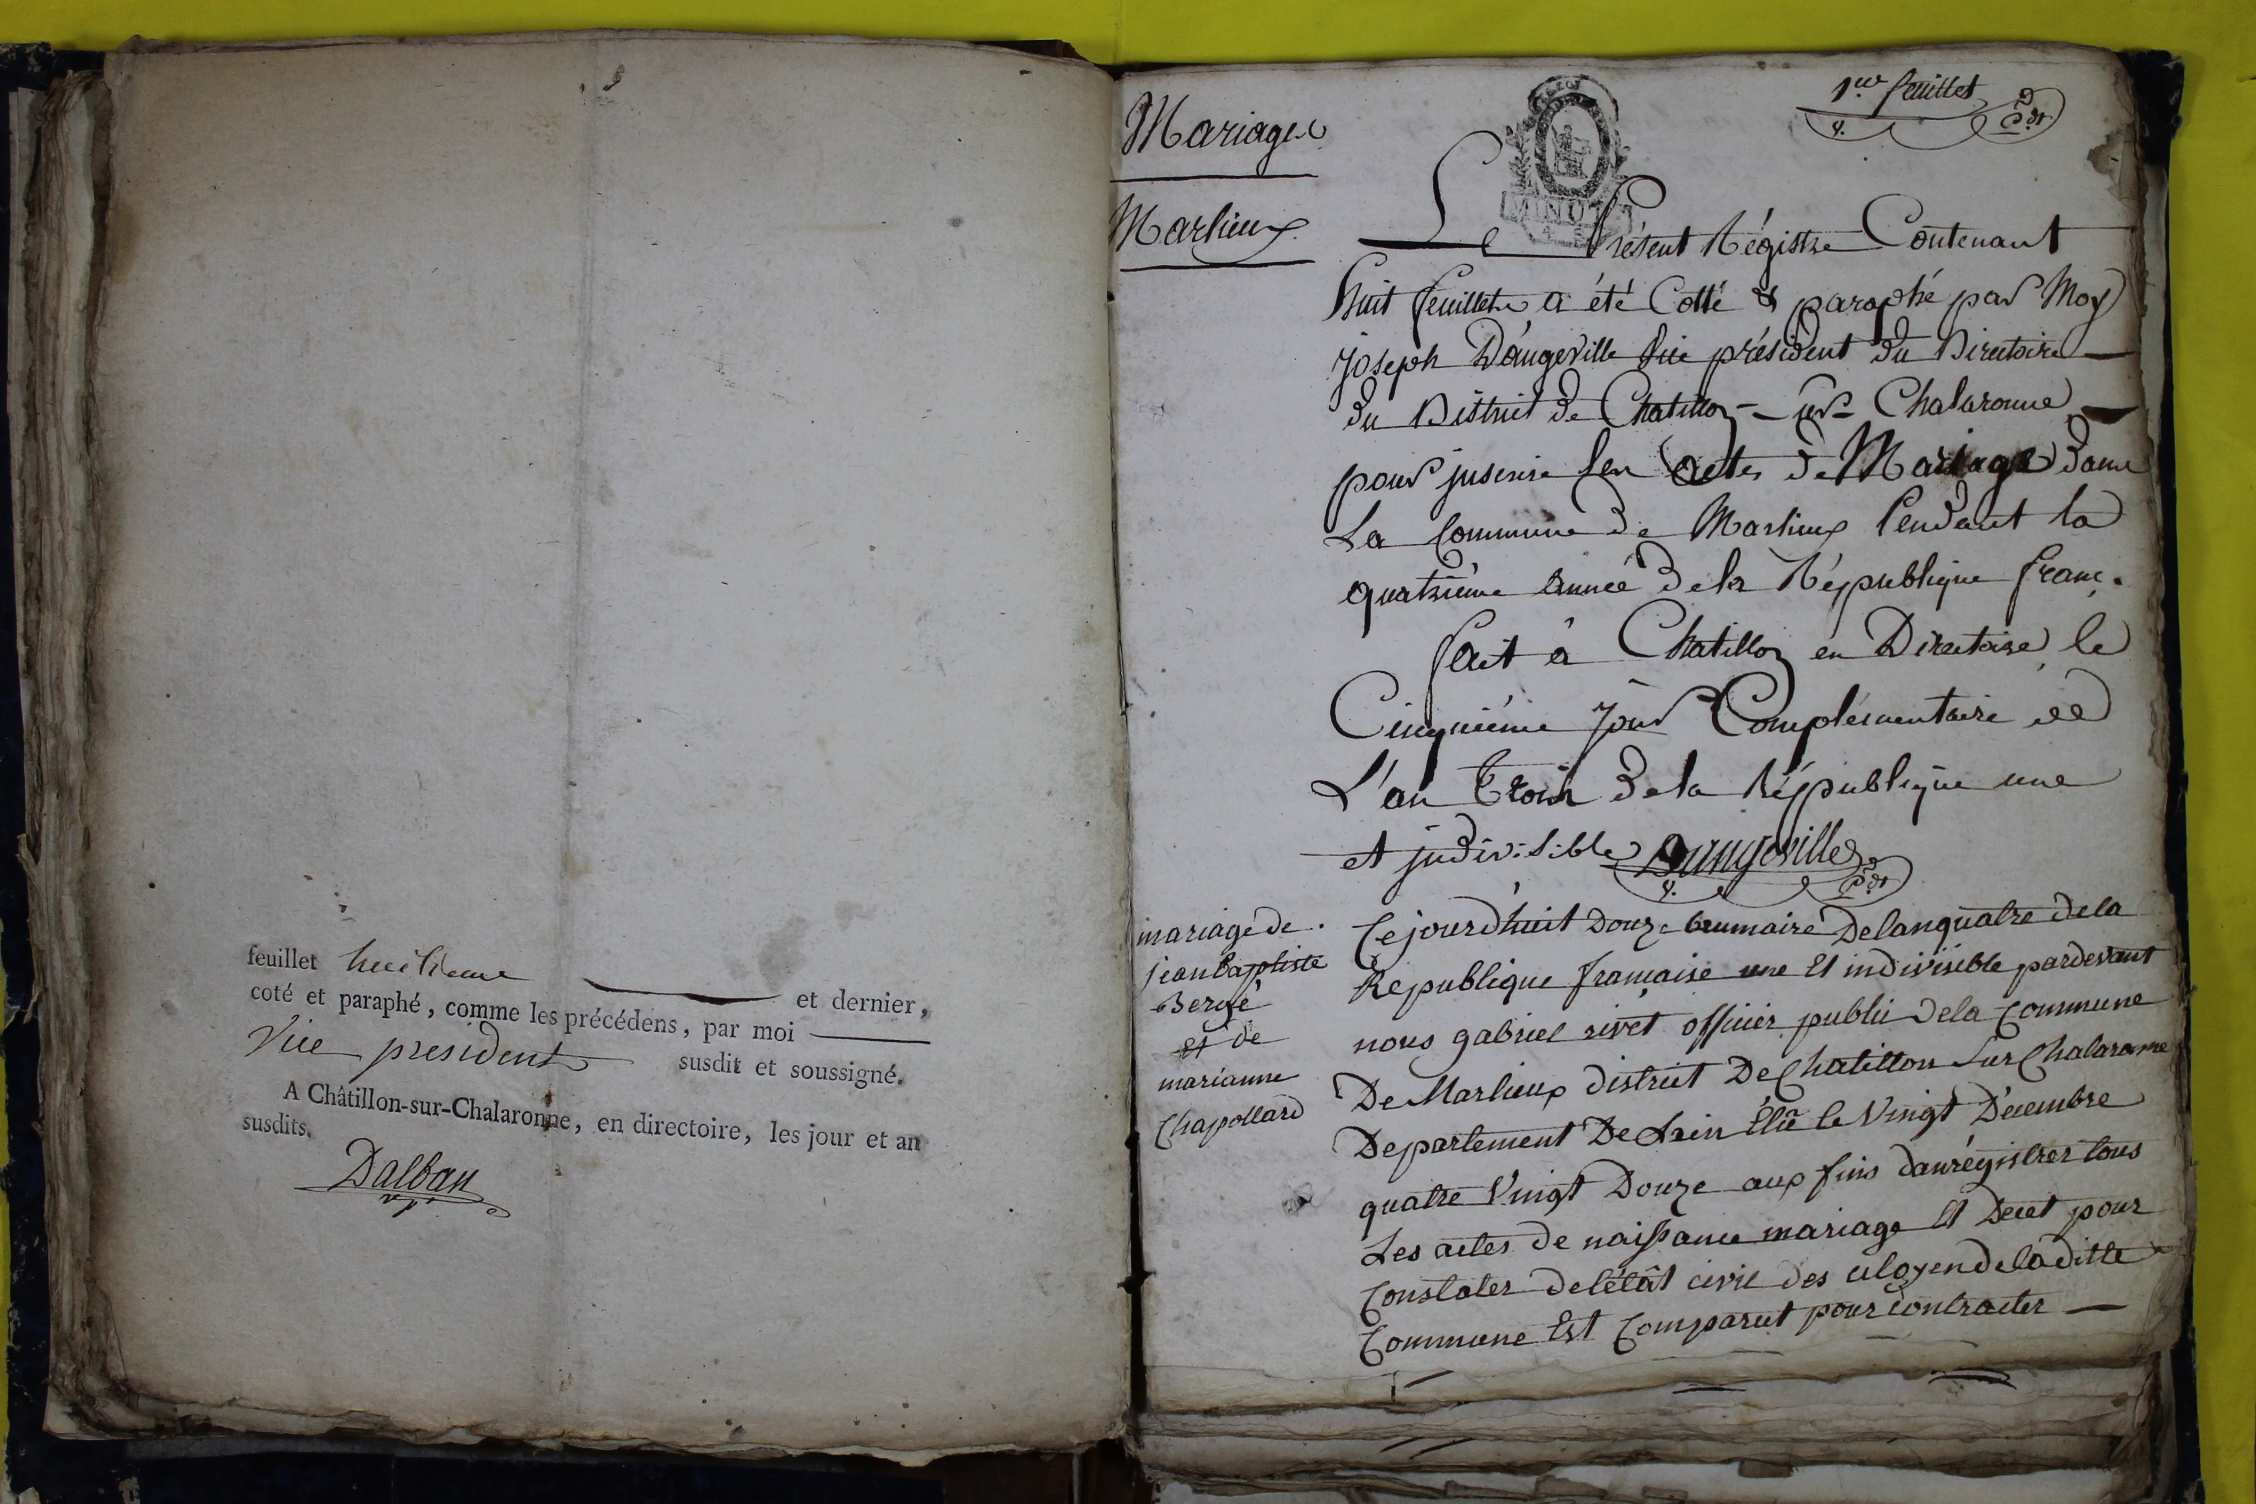 feuillet huitieme et dernier,
coté et paraphé, comme les précédens, par moi
Vice president susdit et soussigné.
A Châtillon-sur-Chalaronne, en directoire, les jour et an
susdits.
Dalban
v. p.
Mariages
Marlieux
1er feuillet
MINUTE
Le Présent Régistre Contenant
huit feuillets a été Cotté & paraphé par Moy
Joseph Dangeville Vice président du Directoire
du District de Chatillon-sur-Chalaronne
pour inscrire les actes de Mariage dans
La Commune de Marlieux Pendant la
quatrième année de la République franç.
fait à Chatillon en Directoire le
Cinquiéme Jour Complémentaire de
L'an trois de la République une
et indivisible Dangeville
mariage de
jean baptiste
Bergé
et de
marianne
Chapollard
Cejourdhuit Douze brumaire Delanquatre dela
Republique francaise une Et indivisible pardevant
nous gabriel rivet officier public Dela Commune
De Marlieux district De Chatillon Sur Chalaronne
Departement De Lain Élû le Vingt Décembre
quatre Vingt Douze aux fins danrégistrer tous
Les actes de naissance mariage Et Decet pour
Constater delétât civil des citoyen de laditte
Commune Est Comparut pour contracter